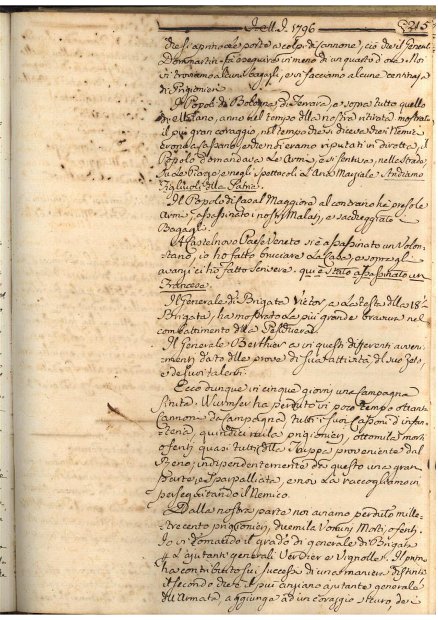 Dell' A. 1796
215
che si aprino le porte a colpi di cannone, ciò che il General
Dommartin fà eseguire in meno di un quarto d'ora. Noi
vi troviamo alcuni bagagli, e vi facciamo alcune centinaja
di Prigionieri
Il Popol di Bologna, di Ferrara, e sopra tutto quello
di Milano, anno nel tempo della nostra ritirata mostrato
il più gran coraggio, nel tempo che si diceva che i Nemici
erono a Cassano, e che noi eravamo riputati in dirotta, il
Popolo domandava le Armi, e si sentiva, nelle strade,
su le Piazze, e negli Spettacoli l'Aria Marziale Andiamo
Figliuoli della Patria.
Il Popolo di Casal Maggiore al contrario hà preso le
Armi, assassinato i nostri Malati, e saccheggiato
Bagagli.
A Castelnovo Paese Veneto si è assassinato un Volon-
tario, io ho fatto bruciare la Casa, e sopra gli
avanzi ci hò fatto scrivere. qui è stato assassinato un
Francese.
Il Generale di Brigata Victor a la testa della 18.
Brigata, ha mostrato la più grande bravura nel
combattimento della Peschiera.
Il Generale Berthier à in questi differenti avveni-
menti dato delle prove di sua attività, di suo zelo,
e de suoi talenti.
Ecco dunque in cinque giorni una Campagna
finita. Wurmser ha perduto in poco tempo ottanta
Cannoni da campagna, tutti i suoi Cassoni d'infan-
teria, quindicimila prigionieri, ottomila morti
o feriti, quasi tutti della Truppa proveniente dal
Reno; indipendentemente da questo una gran
parte è sparpagliata, e noi la raccogliamo in
perseguitando il Nemico.
Dalla nostra parte noi aviamo perduto mille
trecento prigionieri, duemila Uomini Morti, o feriti.
Io vi domando il grado di generale di Brigata
p. l'ajutanti generali Verdier e Vignolles. Il primo
ha contribuito ai successi di una maniera distinta
il secondo che è il più anziano ajutante generale
dell'Armata, aggiunge ad un coraggio sicuro, dei